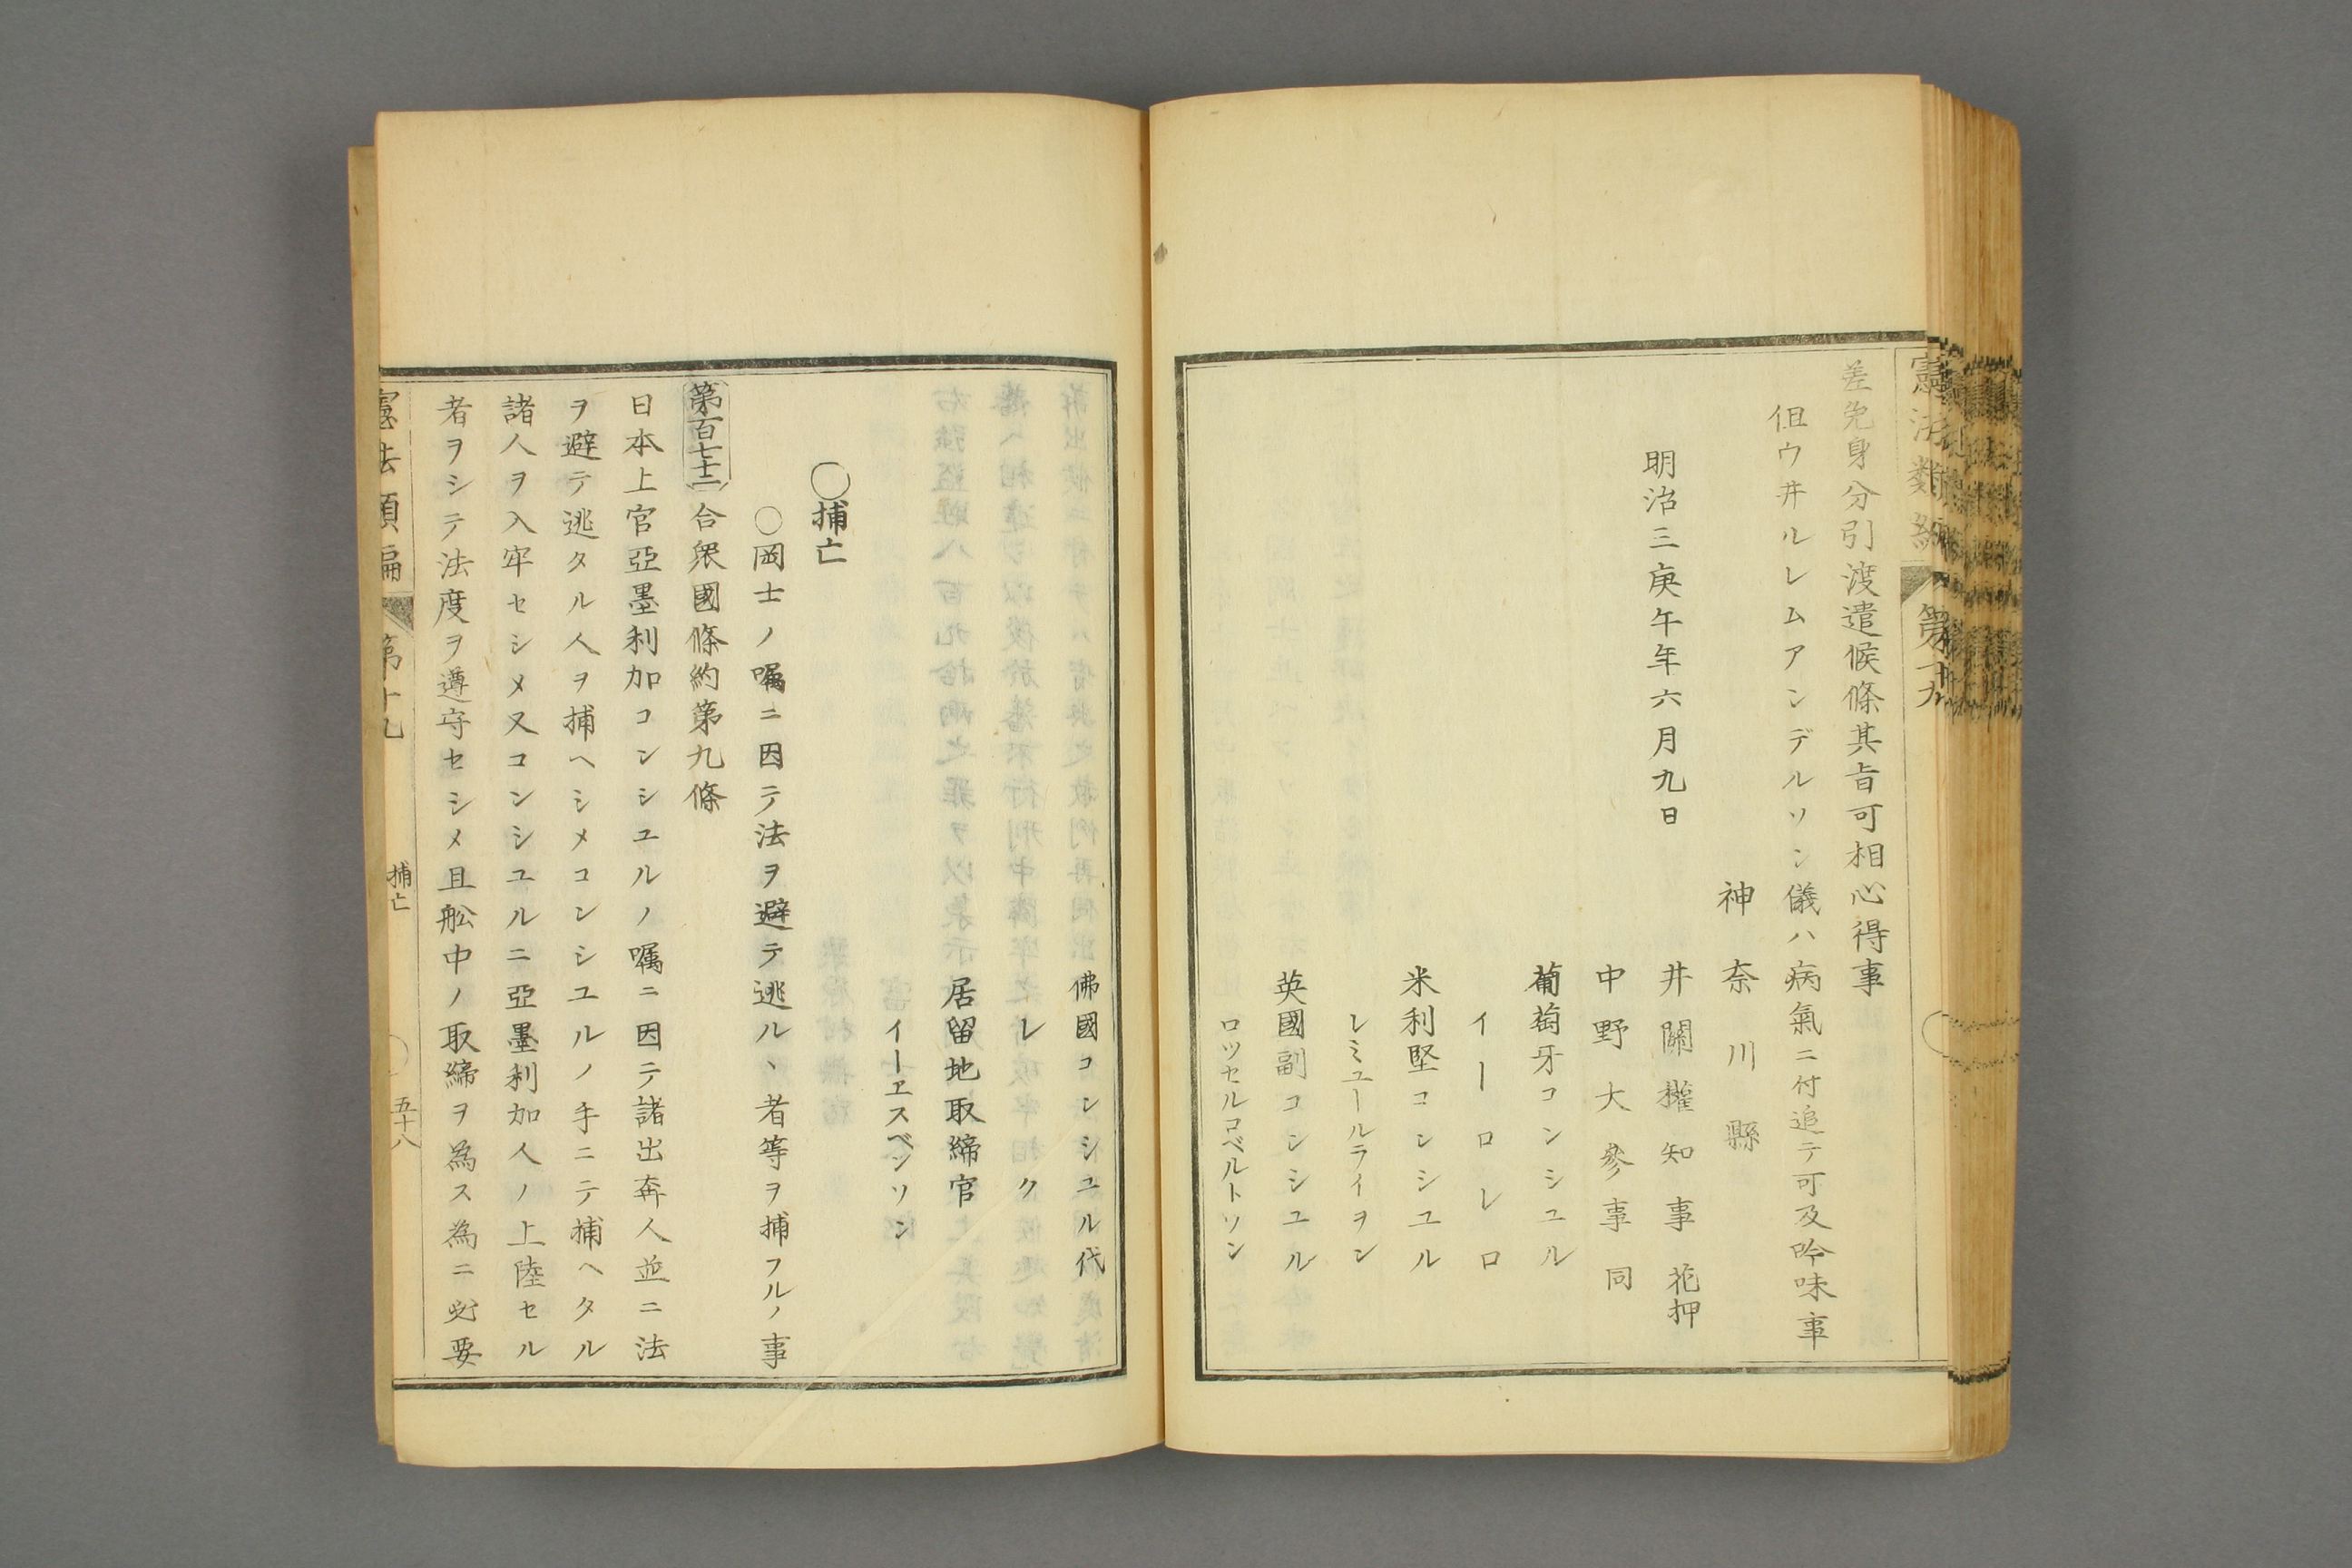 憲法類編 第十九
差免身分引渡遣候條其旨可相心得事
但ウ井ルレムアンデルソン儀ハ病氣ニ付追テ可及吟味事
神奈川縣
明治三庚午年六月九日
井關權知事 花押
中野大參事 同
葡萄牙コンシユル
イーロレロ
米利堅コンシユル
レミユールライヲン
英國副コンシユル
ロツセルコベルトソン
佛國コンシユル代
レク
居留地取締官
イーヱスベンソン
◯捕亡
◯岡士ノ囑ニ因テ法ヲ避テ逃ルヽ者等ヲ捕フルノ事
第百七十二 合衆國條約第九條
日本上官亞墨利加コンシユルノ囑ニ因テ諸出奔人並ニ法
ヲ避テ逃タル人ヲ捕ヘシメコンシユルノ手ニテ捕ヘタル
諸人ヲ入牢セシメ又コンシユルニ亞墨利加人ノ上陸セル
者ヲシテ法度ヲ遵守セシメ且舩中ノ取締ヲ為ス為ニ必要
憲法類編 第十九 捕亡 五十八